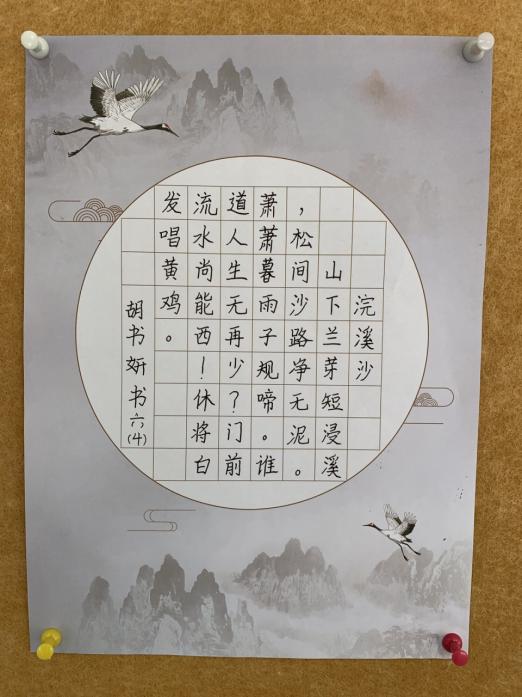 浣溪沙
山下兰芽短浸溪
，松间沙路净无泥。
萧萧暮雨子规啼。谁
道人生无再少？门前
流水尚能西！休将白
发唱黄鸡。
胡书妍书六(4)